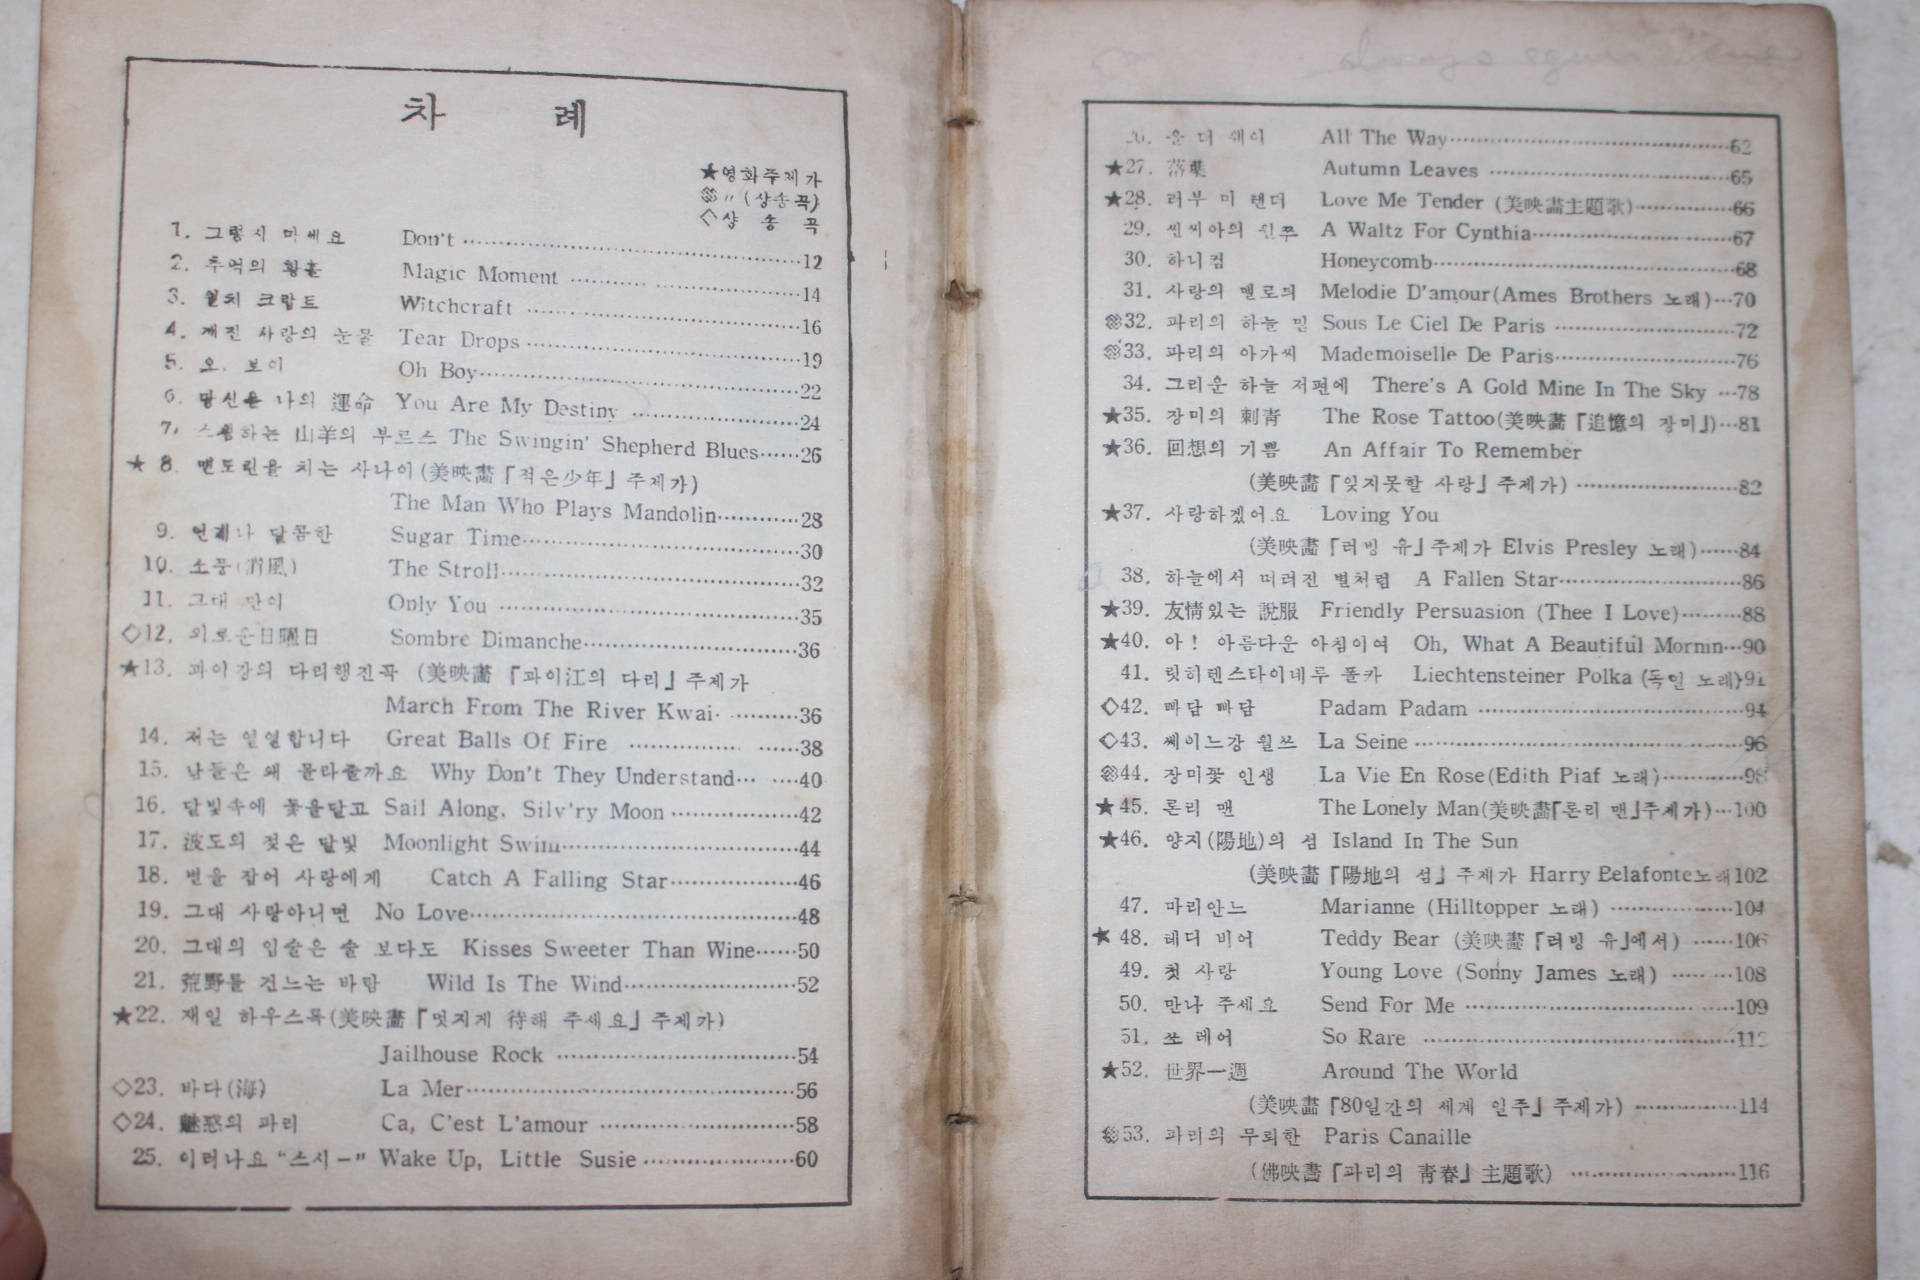 차 례
★영화주제가
〃 (상송곡)
◇샹 송 곡
1. 그렇지 마세요 Don't 12
2. 추억의 황홀 Magic Moment 14
3. 윗치 크랍트 Witchcraft 16
4. 깨진 사랑의 눈물 Tear Drops 19
5. 오, 보이 Oh Boy 22
6. 당신은 나의 運命 You Are My Destiny 24
7. 스윙하는 山羊의 부르스 The Swingin' Shepherd Blues 26
★ 8. 맨도린을 치는 사나이(美映畵「적은少年」주제가)
The Man Who Plays Mandolin 28
9. 언제나 달콤한 Sugar Time 30
10. 소풍(消風) The Stroll 32
11. 그대 만이 Only You 35
◇12. 외로운日曜日 Sombre Dimanche 36
★13. 콰이강의 다리행진곡 (美映畵「콰이江의 다리」주제가
March From The River Kwai 36
14. 저는 열열합니다 Great Balls Of Fire 38
15. 남들은 왜 몰라줄까요 Why Don't They Understand 40
16. 달빛속에 돛을달고 Sail Along, Silv'ry Moon 42
17. 波도의 젖은 달빛 Moonlight Swim 44
18. 별을 잡어 사랑에게 Catch A Falling Star 46
19. 그대 사랑아니면 No Love 48
20. 그대의 입술은 술 보다도 Kisses Sweeter Than Wine 50
21. 荒野를 건느는 바람 Wild Is The Wind 52
★22. 재일 하우스록(美映畵「멋지게 待해 주세요」주제가)
Jailhouse Rock 54
◇23. 바다(海) La Mer 56
◇24. 魅惑의 파리 Ca, C'est L'amour 58
25. 이러나요 "스시ー" Wake Up, Little Susie 60
26. 올 더 웨이 All The Way 62
★27. 落葉 Autumn Leaves 65
★28. 러부 미 텐더 Love Me Tender (美映畵主題歌) 66
29. 씬씨아의 왼쭈 A Waltz For Cynthia 67
30. 하니컴 Honeycomb 68
31. 사랑의 멜로듸 Melodie D'amour(Ames Brothers 노래) 70
32. 파리의 하늘 밑 Sous Le Ciel De Paris 72
33. 파리의 아가씨 Mademoiselle De Paris 76
34. 그리운 하늘 저편에 There's A Gold Mine In The Sky 78
★35. 장미의 刺靑 The Rose Tattoo(美映畵「追憶의 장미」) 81
★36. 回想의 기쁨 An Affair To Remember
(美映畵「잊지못할 사랑」주제가) 82
★37. 사랑하겠어요 Loving You
(美映畵「러빙 유」주제가 Elvis Presley 노래) 84
38. 하늘에서 떠러진 별처럼 A Fallen Star 86
★39. 友情있는 說服 Friendly Persuasion (Thee I Love) 88
★40. 아! 아름다운 아침이여 Oh, What A Beautiful Mornin 90
41. 릿히텐스타이네루 폴카 Liechtensteiner Polka (독일 노래) 91
◇42. 빠담 빠담 Padam Padam 94
◇43. 쎄이느강 월쓰 La Seine 96
44. 장미꽃 인생 La Vie En Rose(Edith Piaf 노래) 98
★45. 론리 맨 The Lonely Man(美映畵「론리 맨」주제가) 100
★46. 양지(陽地)의 섬 Island In The Sun
(美映畵「陽地의 섬」주제가 Harry Belafonte노래 102
47. 마리안느 Marianne (Hilltopper 노래) 104
★48. 테디 비어 Teddy Bear (美映畵「러빙 유」에서) 106
49. 첫 사랑 Young Love (Sonny James 노래) 108
50. 만나 주세요 Send For Me 109
51. 쏘 레어 So Rare 112
★52. 世界一週 Around The World
(美映畵「80일간의 세계 일주」주제가) 114
53. 파리의 무뢰한 Paris Canaille
(佛映畵「파리의 靑春」主題歌) 116